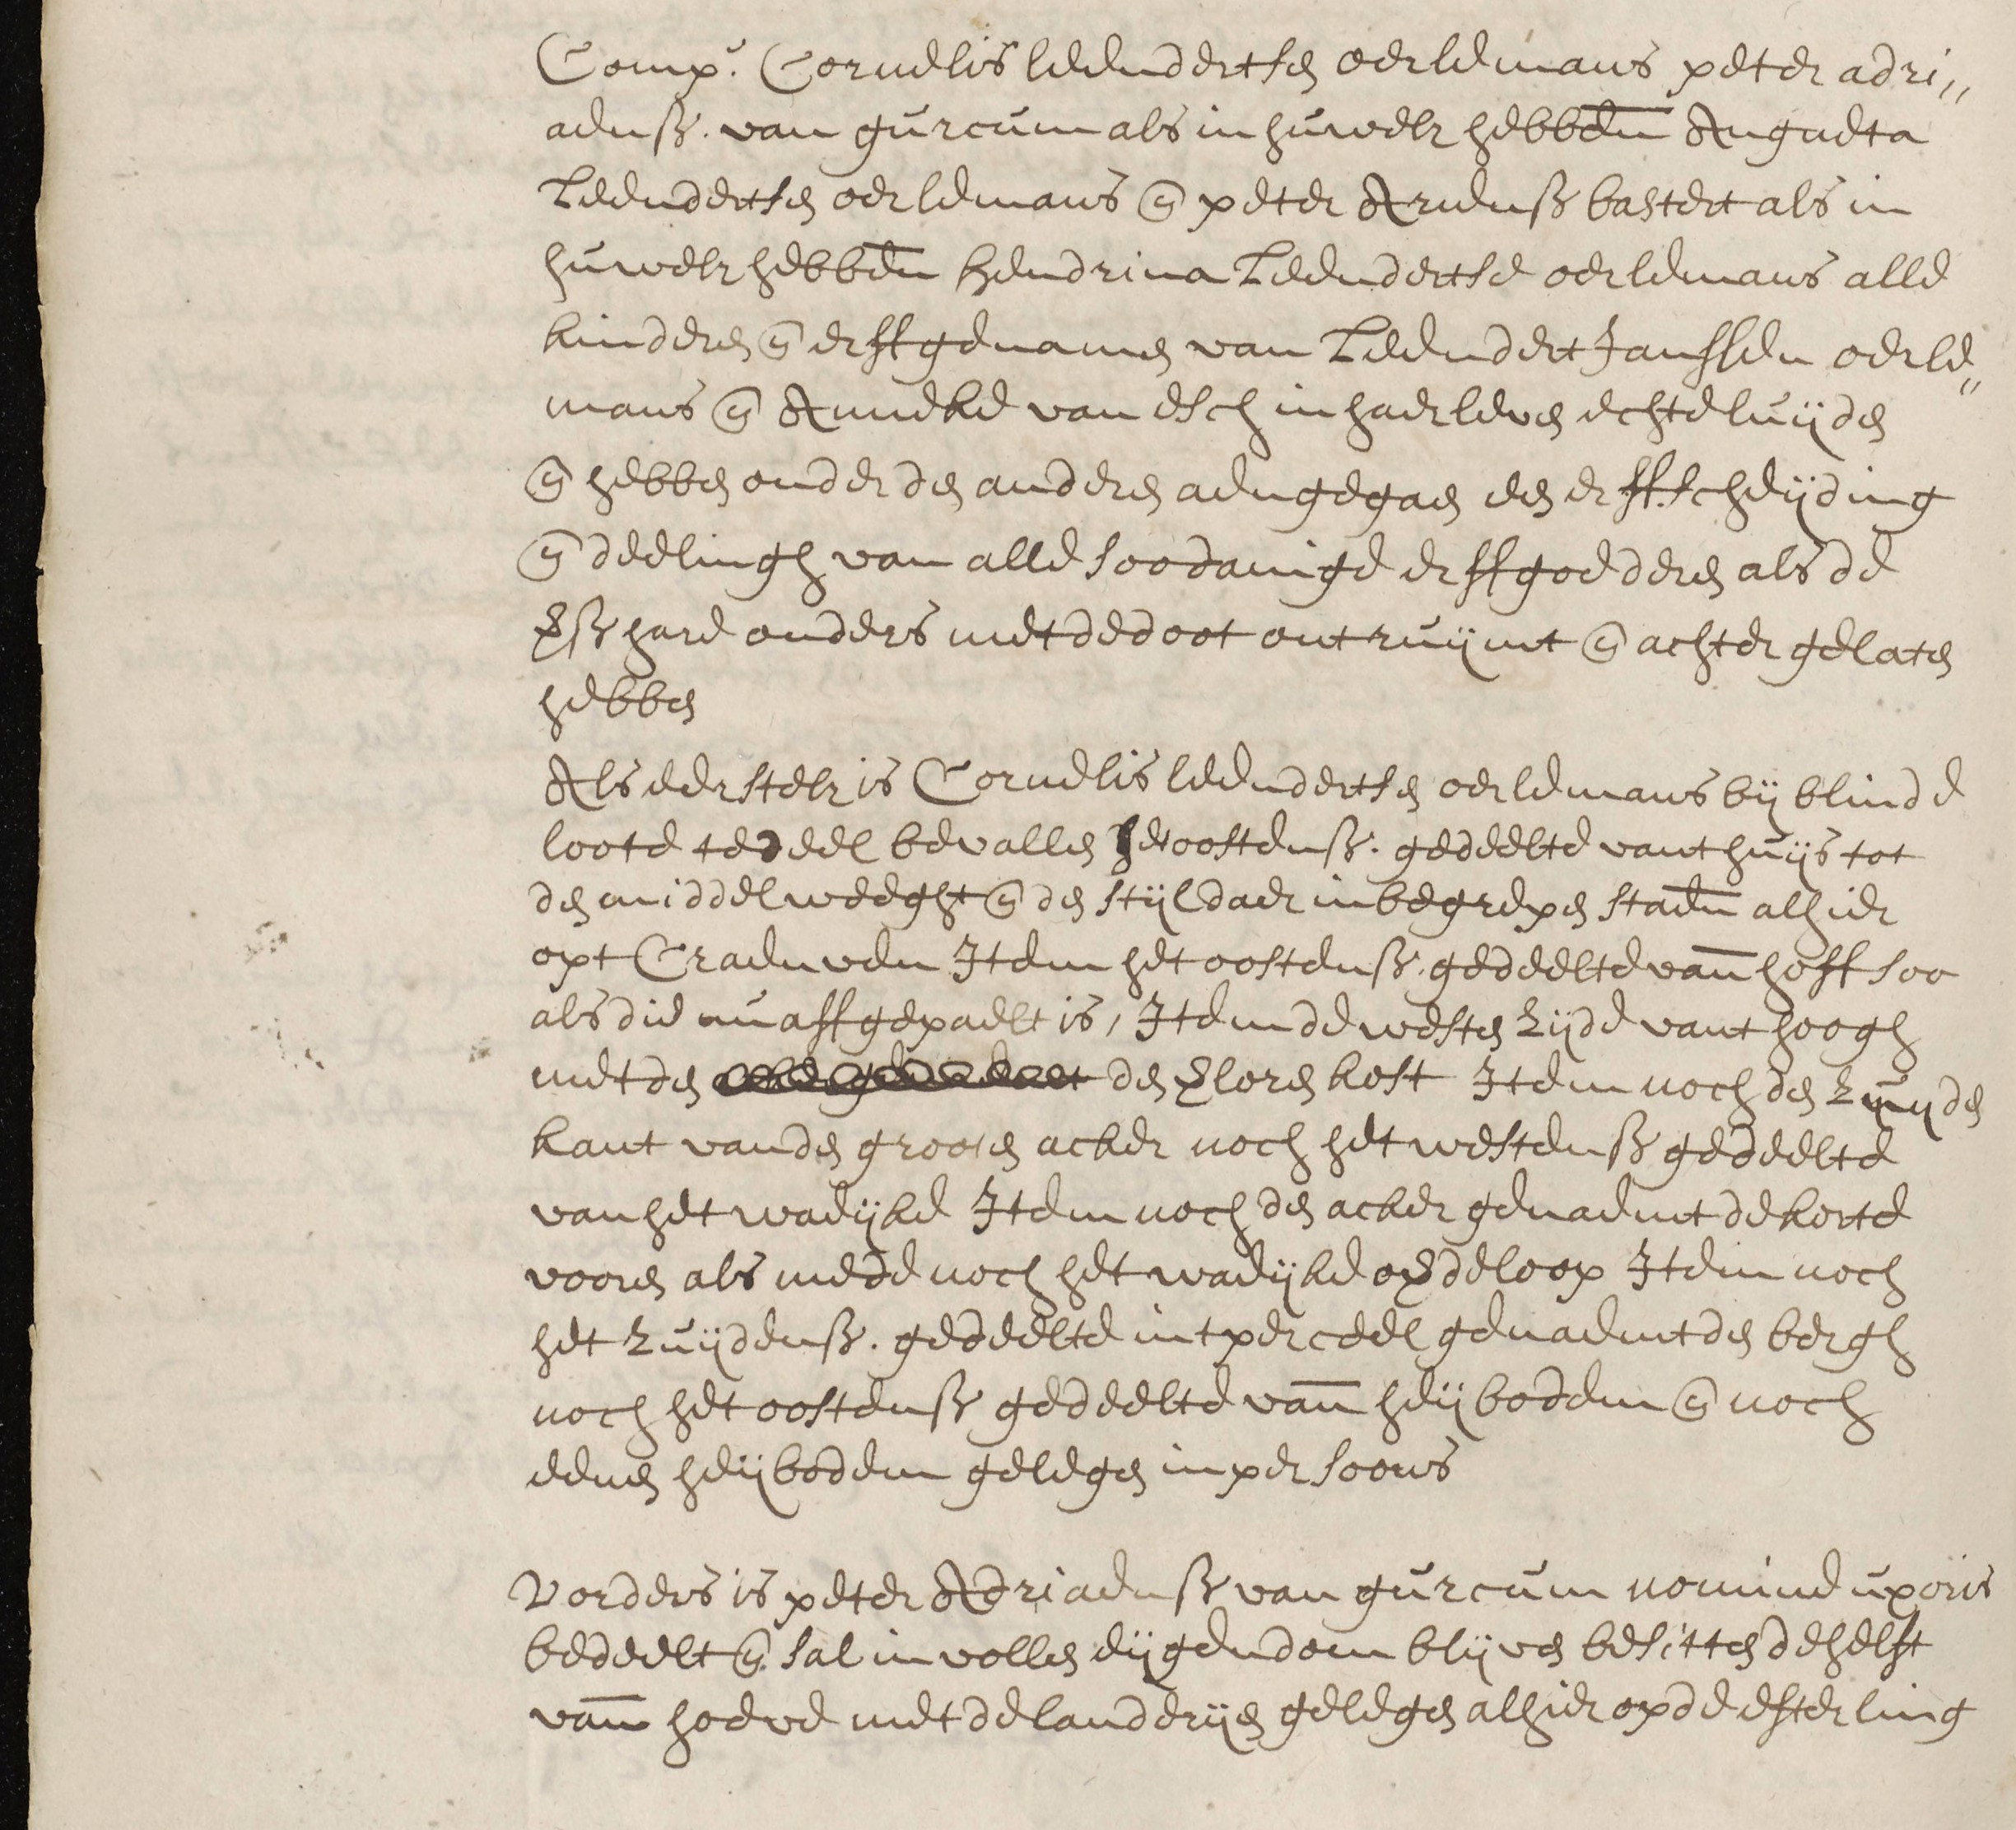 Comp.r Cornelis leendertsen oerlemans peter adri„
aenss. van gurcum als in huwelx hebbende Angneta
Leendertsen oerlemans en peter Arienss bastert als in
huwelx hebbende hendrina Leendertse oerlemans alle
kinderen en erffgenamen van Leendert Janssen oerle„
mans en Anneke van esch in haer leven echteluijden
en hebben onder den anderen aengegaen een erffscheijding
en deelingh van alle soodanige erffgoederen als de
pss hare ouders met de doot ontruijmt en achtergelaten
hebben
Als eerstelx is Cornelis leendertsen oerlemans bij blinde
loote te deel bevallen het oostenss. gedeelte vant huijs tot
den middelweeght en den stijl daer in begrepen staende alhier
opt Craenven Item het oostenss. gedeelte vanden hoff soo
als die nu affgepaelt is, Item de westen zijde vant hoogh
met den den ploren kost Item noch den zuijden
kant vanden grooten acker noch het westenss gedeelte
van het waeijke Item noch den acker genaemt de korte
vooren als mede noch het waeijke op de loop Item noch
het zuijdenss. gedeelte int perceel genaemt den bergh
noch het oostenss gedeelte vanden heijbodem en noch
eenen heijbodem gelegen in persoons
Vorders is peter Adriaenss van gurcum nomine uxoris
bedeelt en sal in vollen eijgendom blijven besitten de helft
vande hoeve met de landerijen gelegen alhier op de efterling